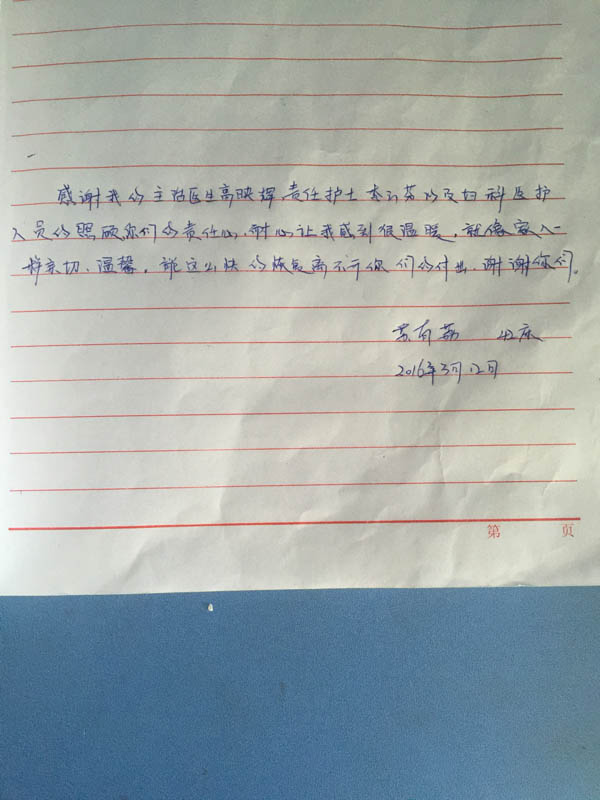 感谢我的主治医生高映辉、责任护士李云芬以及妇科医护
人员的照顾，你们的责任心，耐心让我感到很温暖，就像家人一
样亲切、温馨，能这么快的恢复离不开你们的付出，谢谢你们。
苏有荔
2016年3月12日
第 页